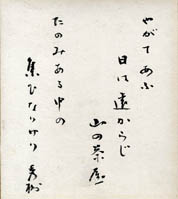 やがてあふ
日は遠からじ
山の茶屋
たのみある中の
集ひなりけり